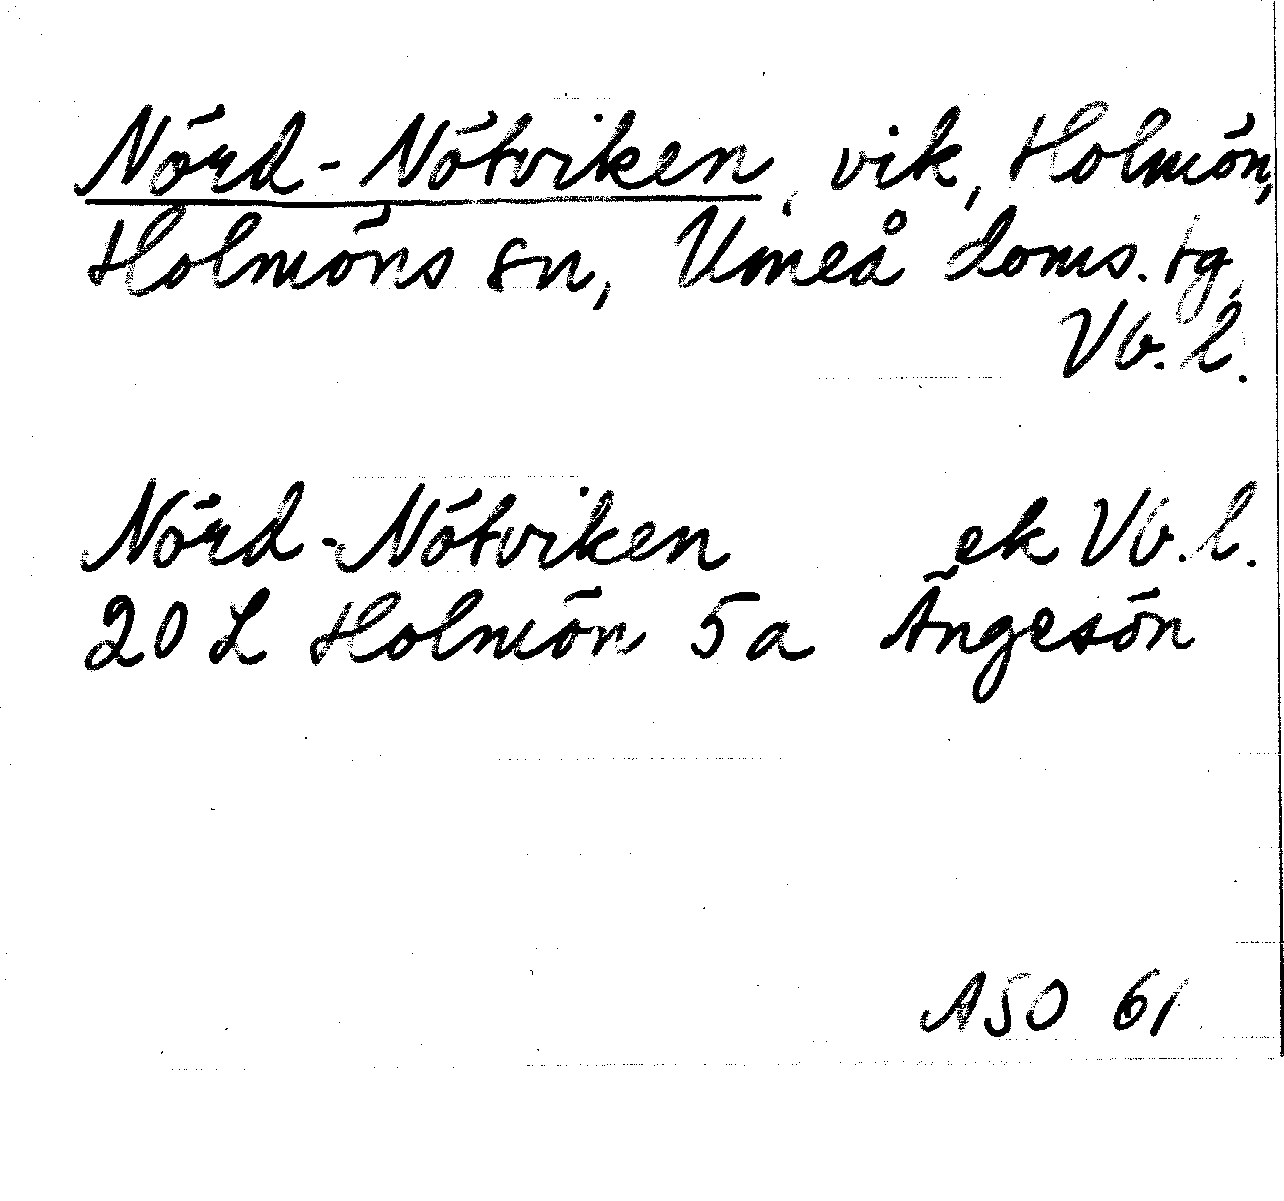 Nörd-Nötviken, vik, Holmön,
Holmöns sn, Umeå doms. tg,
Vb. l.
Nörd-Nötviken ek Vb. l.
20 L Holmön 5 a Ängesön
ASO 61